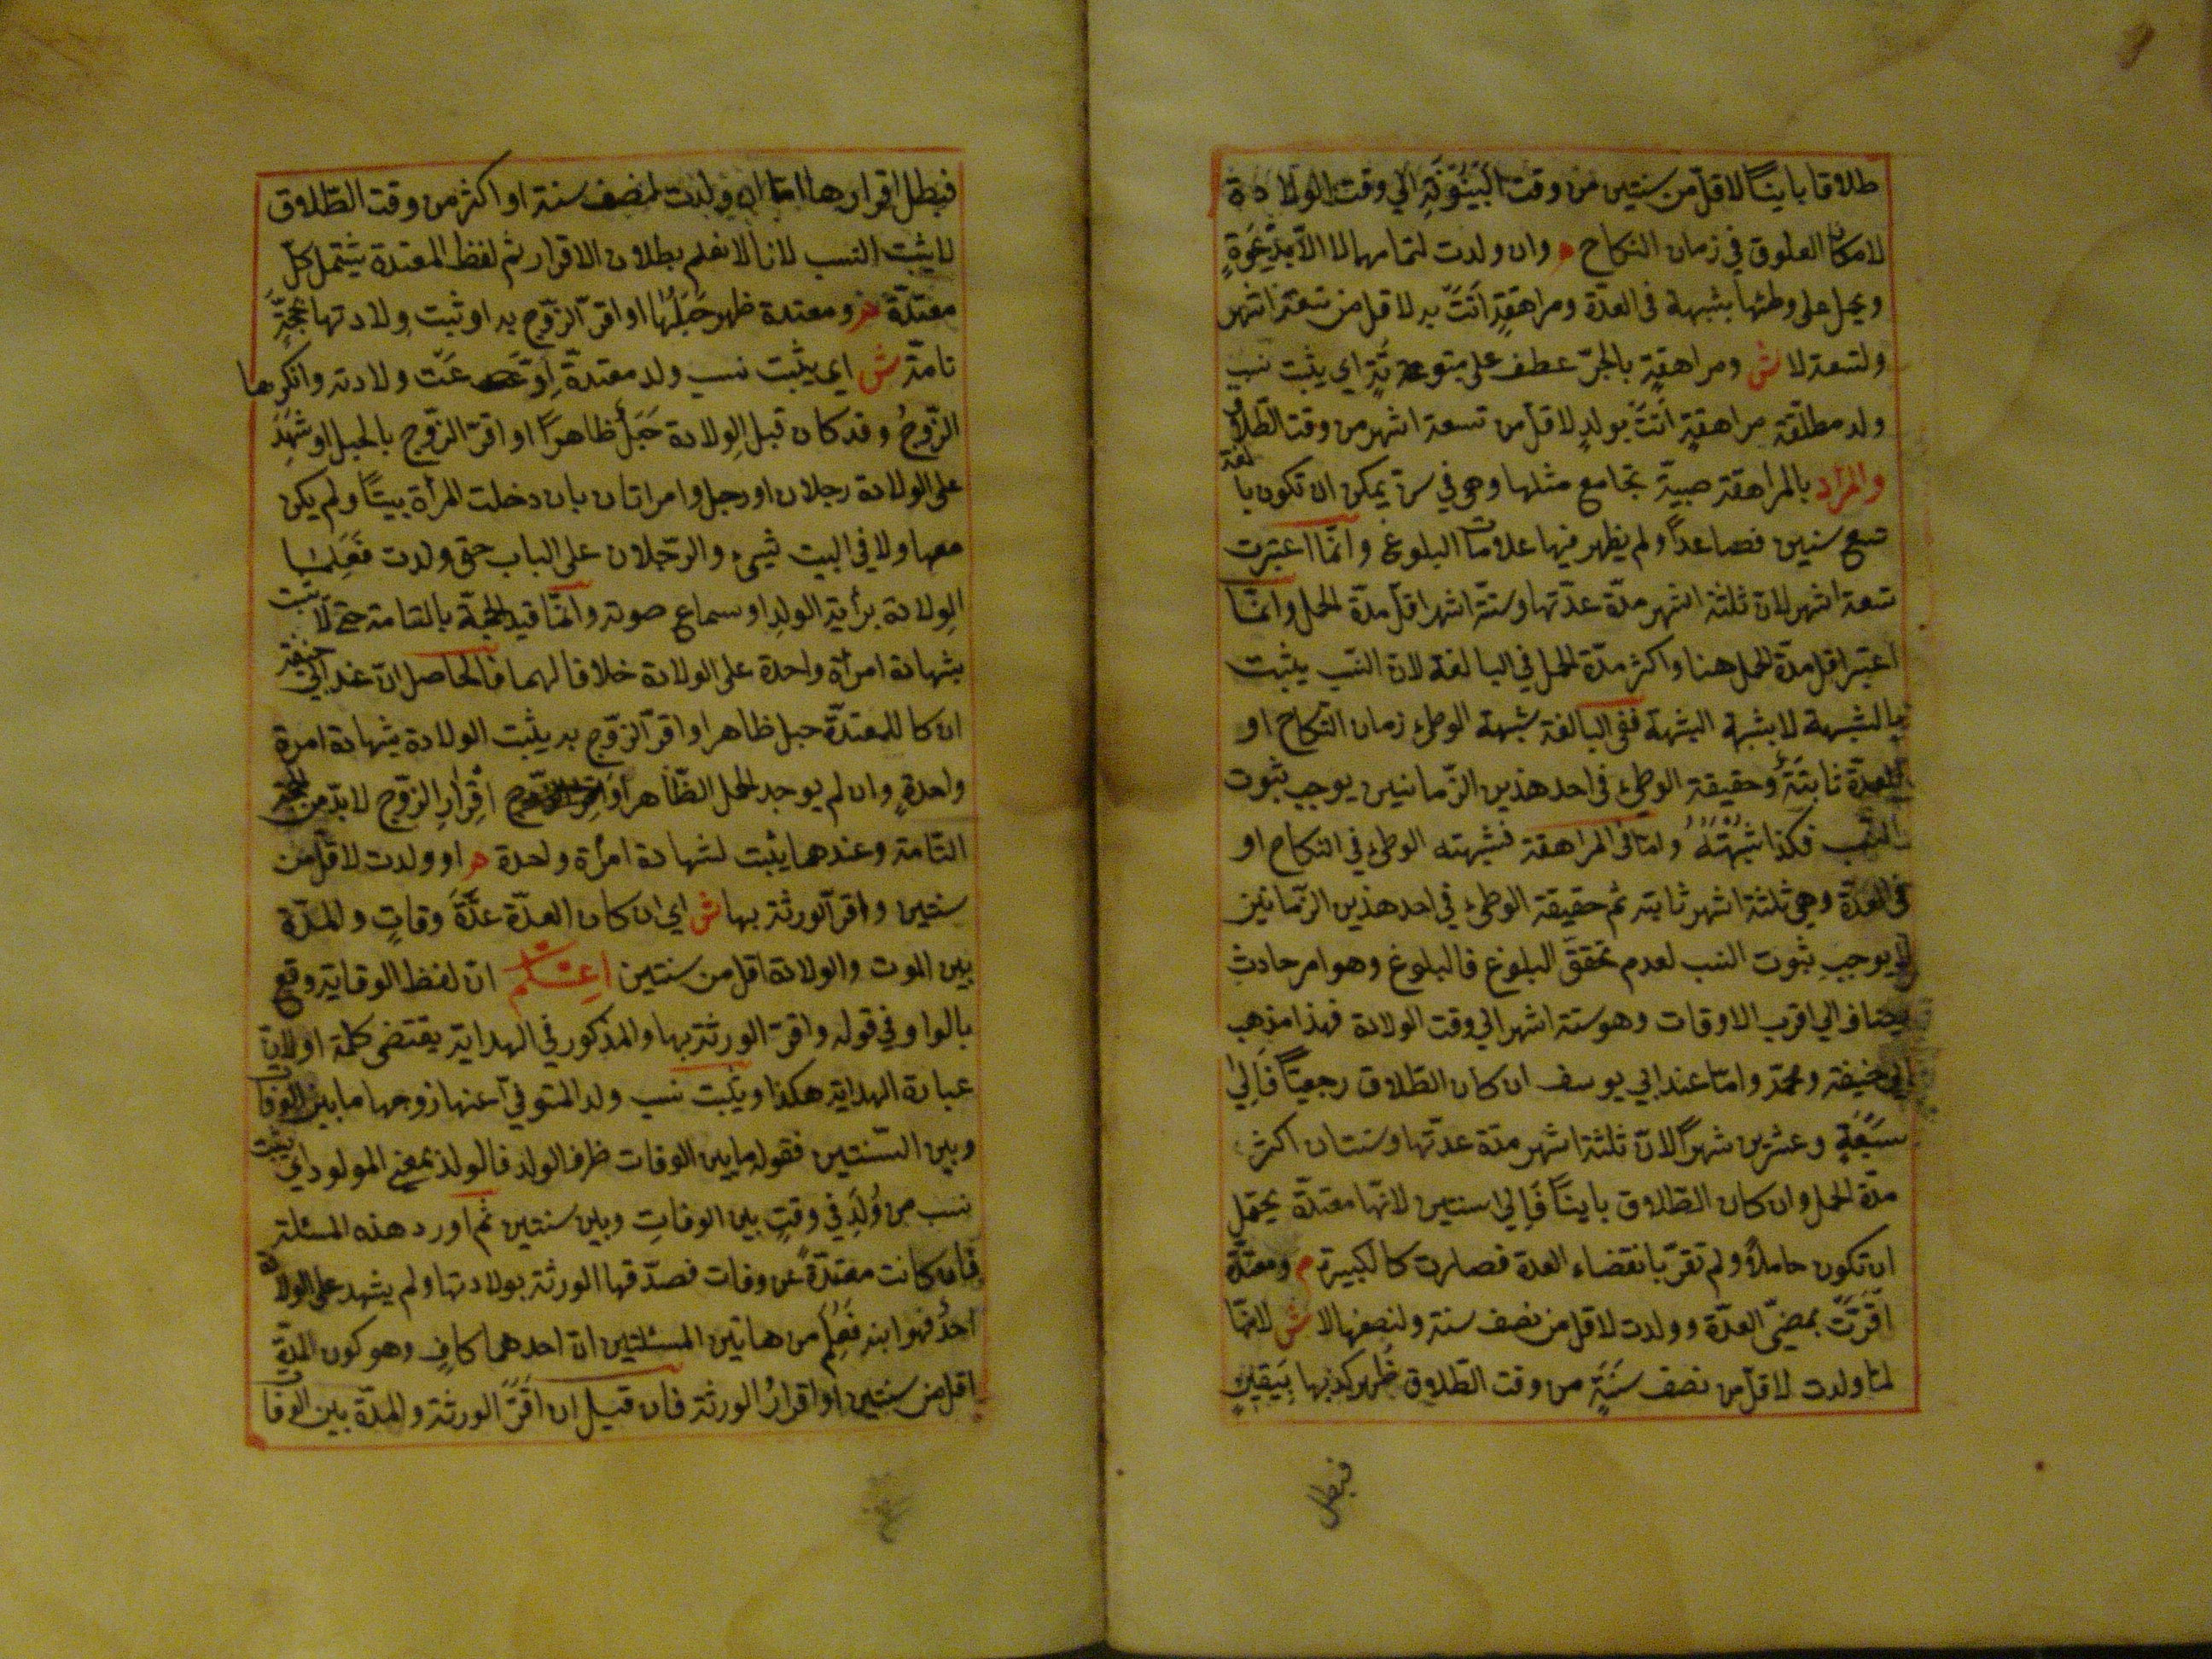 طلاقا باينًا لاقلّ من سنتين من وقت البَيْنُوْنَةِ الي وقت الولادة
لامكان العلوق في زمان النكاح م وان ولدت لتمامهما لا الاّ بدِعْوَةٍ
ويحمل على وطئها بشبهة في العدّة ومراهقةٍ اَتَتْ به لاقل من تسعة اشهر
ولتسعة لا ش ومراهقةٍ بالجرّ عطف على مبتوتةٍ اي يثبت نسب
ولد مطلّقة مراهقةٍ اتَتْ بولدٍ لاقلّ من تسعة اشهر من وقت الطّلاق
والمراد بالمراهقة صبيّة تجامع مثلها وهي في سنّ يمكن ان تكون بالغة
تسع سنين فصاعدًا ولم يظهر فيها علامات البلوغ وانّما اعتبرت
تسعة اشهر لان ثلثة اشهر مدّة عدّتها وستّة اشهر اقلّ مدّة الحمل وانّما
اعتبر اقل مدّة الحمل هنا واكثر مدّة الحمل في البالغة لان النسب يثبت
بالشبهة لا بشبهة الشبهة ففي البالغة شبهة الوطي زمان النّكاح او
العدّة ثابتَةٌ وحقيقة الوطي في احد هذين الزّمانين يوجب ثبوت
النّسب فكذا شُبْهَتُهُ وامّا في المراهقة فشبهته الوطي في النكاح او
في العدّة وهي ثلثة اشهر ثابته ثم حقيقة الوطي في احد هذين الزّمانين
لا يوجب ثبوت النسب لعدم تحقق البلوغ فالبلوغ وهو امر حادث
يضاف الي اقرب الاوقات وهو ستة اشهر الي وقت الولادة فهذا مذهب
ابي حنيفة ومحمّد وامّا عند ابي يوسف ان كان الطّلاق رجعيّاً فالي
سَبْعَةٍ وعشرين شهرًا لانّ ثلثة اشهر مدّة عدّتها وسنتان اكثر
مدّة الحمل وان كان الطّلاق باينًا فالي سنتين لانّها معتدّة يحتمل
ان تكون حاملاً ولم تقرّ بانقضاء العدة فصارت كالكبيرة م ومعتدّة
اَقَرَّتْ بمضيّ العدّة وولدت لاقل من نصف سنة ولنصفها لا ش لانها
لمّا ولدت لاقلّ من نصف سَنَةٍ من وقت الطّلاق ظهر كذبها بِيَقِينٍ
فبطل
فبطل اقرارها امّا ان ولدت لنصف سنة او اكثر من وقت الطّلاق
لا يثبت النسب لانا لا نعلم بطلان الاقرار ثم لفظ المعتدة يشتمل كلّ
معتدّة م ومعتدة ظهر حَبَلُها او اقرّ الزّوج به او ثبت ولادتها بحجّةٍ
تامّة ش اي يثبت نسب ولد معتدةٍ اِدَّعَتْ ولادته وانكرها
الزّوجُ وقد كان قبل الوِلادة حَبَلٌ ظاهرًا او اقرّ الزّوج بالحبل او شَهِدَ
على الولادة رجلان او رجل وامراتان بان دخلت المرأة بيتًا ولم يكن
معها ولا في البيت شيء والرّجلان على الباب حتى ولدت فَعَلِمَا
الوِلادة برأية الولد او سماع صوته وانّما قيد الحجّة بالتامة حتى لا يثبت
بشهادة امرأة واحدة على الولادة خلافا لهما فالحاصل انّ عند ابي حنيفة
ان كا للمعتدّة حبل ظاهر او اقرّ الزّوج به يثبت الولادة بشهادة امرة
واحدةٍ وان لم يوجد الحمل الظّاهر او اِقْرارِ الزّوج لا بدّ من الحجّة
التّامة وعندهما يثبت لشهادة امرأة واحدة م او ولدت لاقلّ من
سنتين واقرّ الورثة بها ش اي ان كان العدّة عدّةَ وفاتٍ والمدّة
بين الموت والولادة اقل من سنتين اعلم انّ لفظ الوقاية وقع
بالواو في قوله واقرّ الورثة بها والمذكور في الهداية يقتضى كلمة او لانّ
عبارة الهداية هكذا ويثبت نسب ولد المتوفيّ عنها زوجها ما بين الوفا
وبين السّنتين فقوله ما بين الوفات ظرف الولد فالولد بمعنى المولود اي يثبت
نسب من وُلِدَ في وقتٍ بين الوفاتِ وبين سنتين ثم اورد هذه المسئلة
فان كانت معتدّةً عن وفات فصدّقها الورثة بولادتها ولم يشهد على الولادة
احدٌ فهو ابنه فَعُلِمَ من هاتين المسئلتين انّ احدهما كافٍ وهو كون المدّة
اقل من سنتين او اقرارُ الورثة فان قيل ان اَقَرَّ الورثة والمدّة بين الوفا